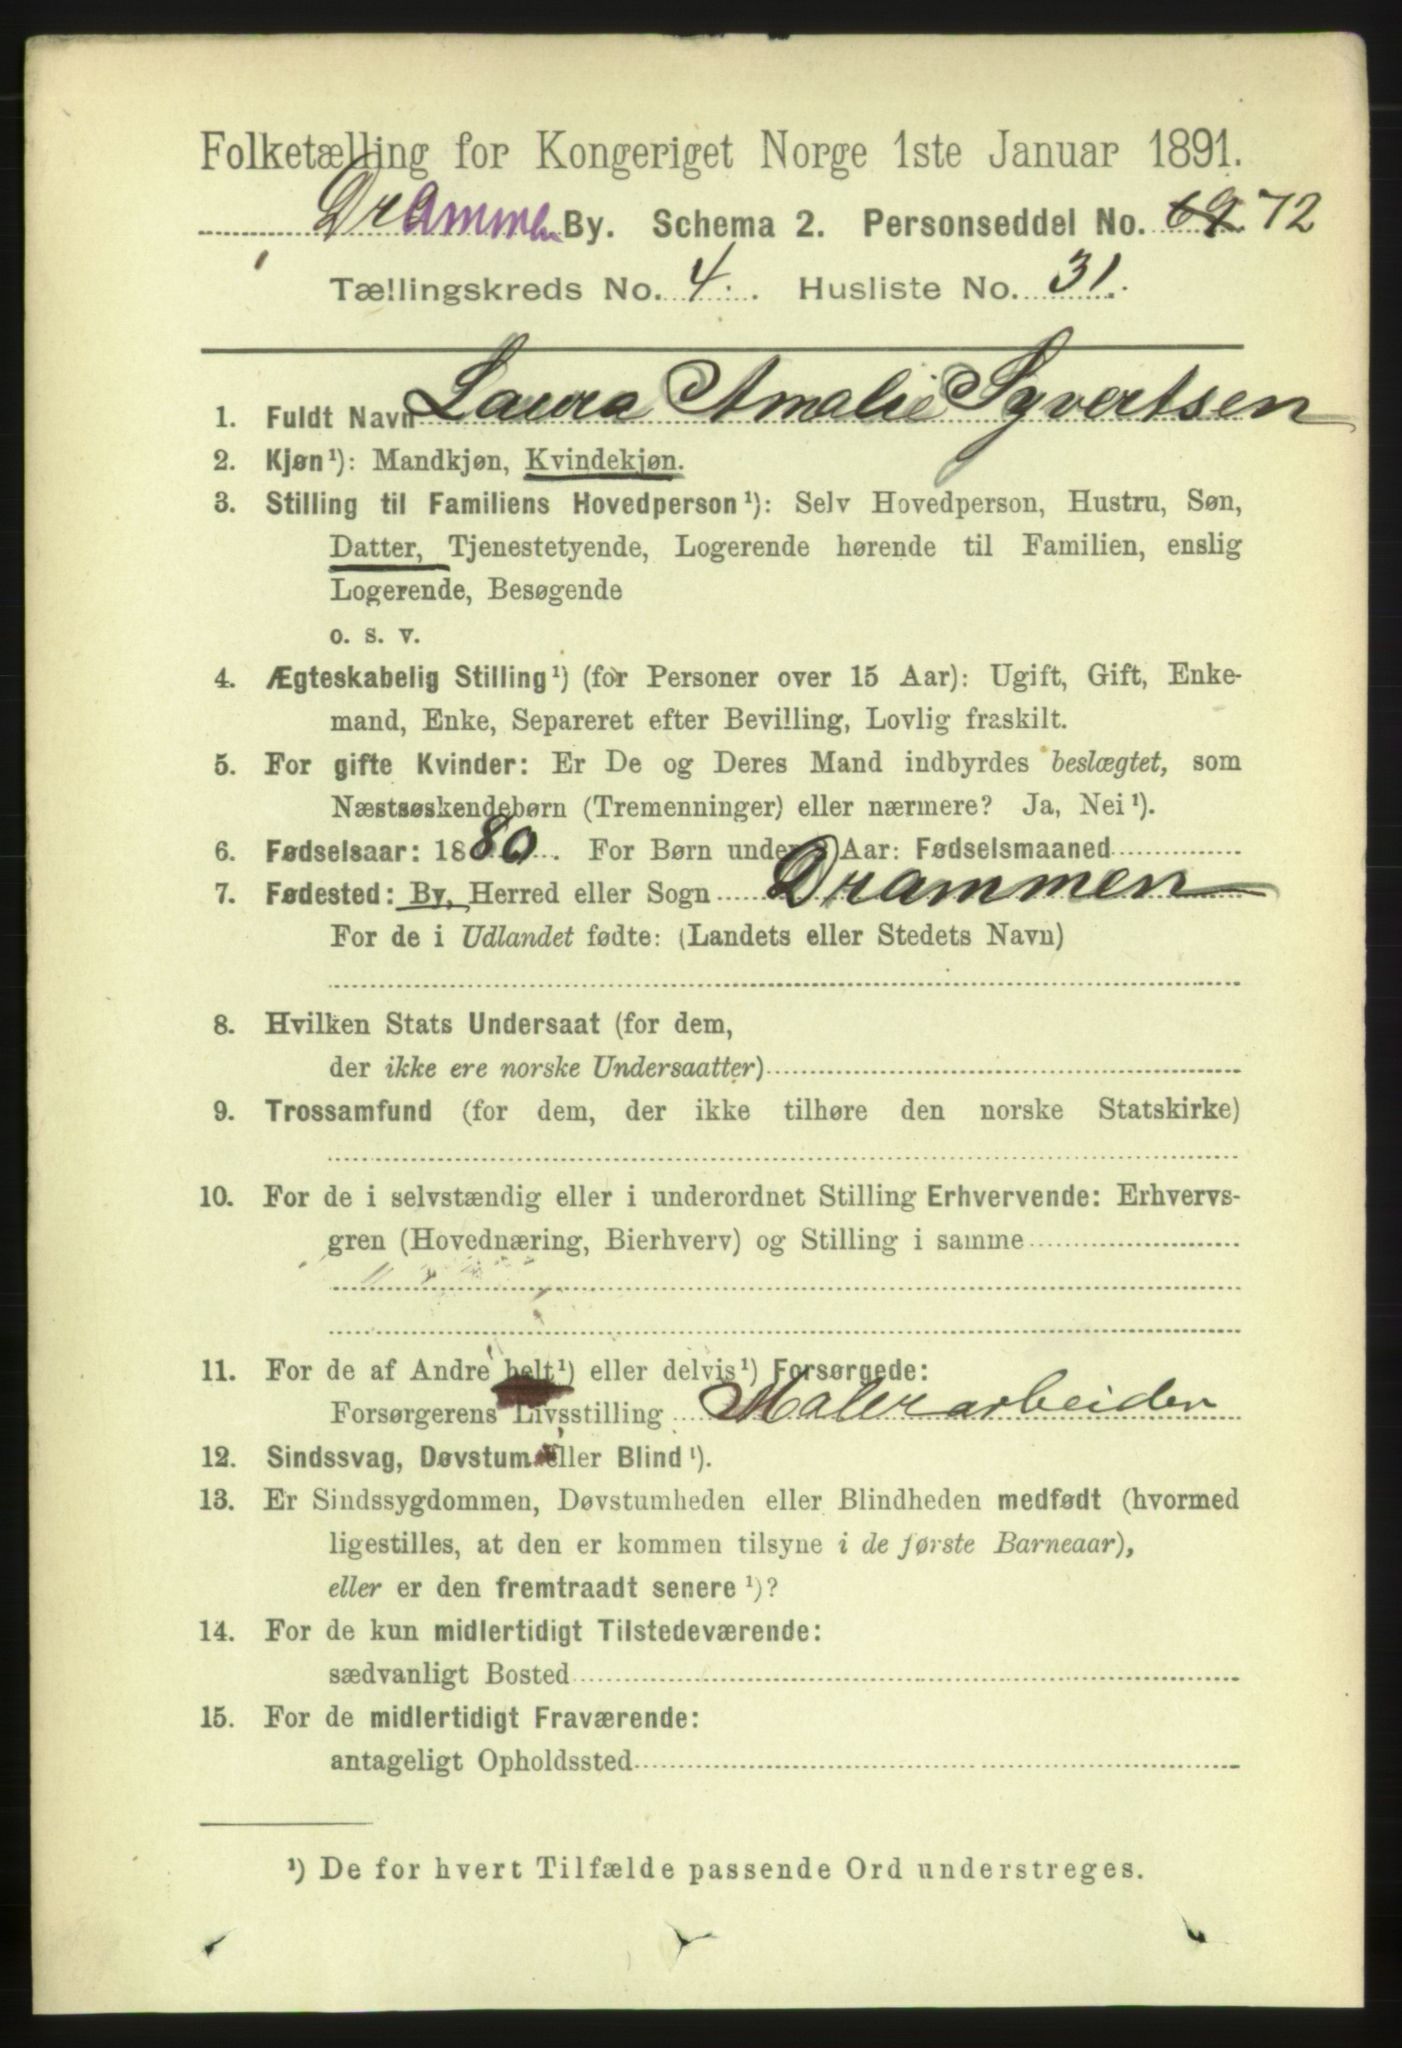 Folketælling for Kongeriget Norge 1ste Januar 1891.
Drammen By. Schema 2. Personseddel No. 69. 72
Tællingskreds No. 4. Husliste No. 31.
1. Fuldt Navn Laura Amalie Syvertsen
2. Kjøn¹): Mandkjøn, Kvindekjøn.
3. Stilling til Familiens Hovedperson¹): Selv Hovedperson, Hustru, Søn,
Datter, Tjenestetyende, Logerende hørende til Familien, enslig
Logerende, Besøgende
o. s. v.
4. Ægteskabelig Stilling¹) (for Personer over 15 Aar): Ugift, Gift, Enke-
mand, Enke, Separeret efter Bevilling, Lovlig fraskilt.
5. For gifte Kvinder: Er De og Deres Mand indbyrdes beslægtet, som
Næstsøskendebørn (Tremenninger) eller nærmere? Ja, Nei¹).
6. Fødselsaar: 1880. For Børn under Aar: Fødselsmaaned
7. Fødested: By, Herred eller Sogn Drammen
For de i Udlandet fødte: (Landets eller Stedets Navn)
8. Hvilken Stats Undersaat (for dem,
der ikke ere norske Undersaatter)
9. Trossamfund (for dem, der ikke tilhøre den norske Statskirke)
10. For de i selvstændig eller i underordnet Stilling Erhvervende: Erhvervs-
gren (Hovednæring, Bierhverv) og Stilling i samme
11. For de af Andre helt¹) eller delvis¹) Forsørgede:
Forsørgerens Livsstilling Malerarbeider
12. Sindssvag, Døvstum eller Blind¹).
13. Er Sindssygdommen, Døvstumheden eller Blindheden medfødt (hvormed
ligestilles, at den er kommen tilsyne i de første Barneaar),
eller er den fremtraadt senere¹)?
14. For de kun midlertidigt Tilstedeværende:
sædvanligt Bosted
15. For de midlertidigt Fraværende:
antageligt Opholdssted
¹) De for hvert Tilfælde passende Ord understreges.